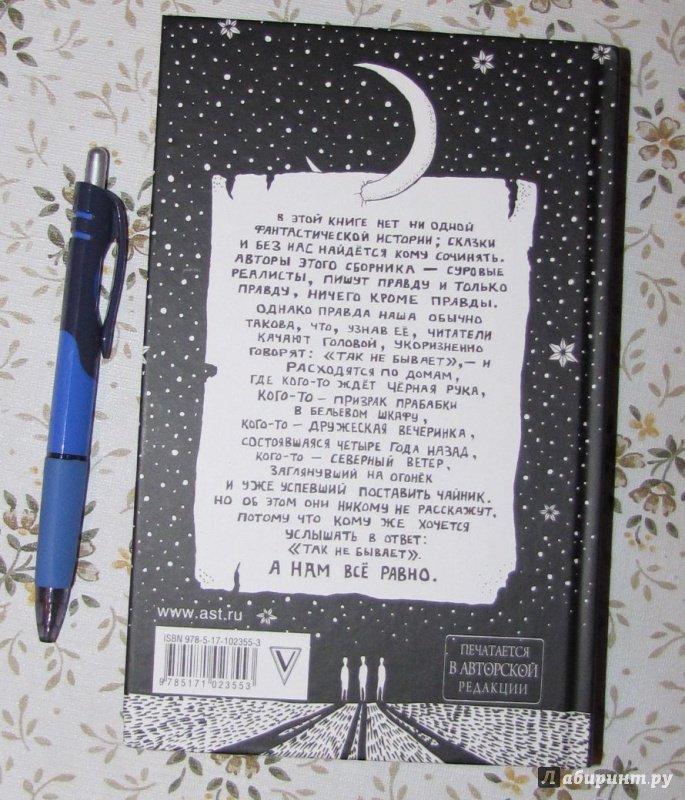 В ЭТОЙ КНИГЕ НЕТ НИ ОДНОЙ
ФАНТАСТИЧЕСКОЙ ИСТОРИИ; СКАЗКИ
И БЕЗ НАС НАЙДЁТСЯ КОМУ СОЧИНЯТЬ.
АВТОРЫ ЭТОГО СБОРНИКА — СУРОВЫЕ
РЕАЛИСТЫ, ПИШУТ ПРАВДУ И ТОЛЬКО
ПРАВДУ, НИЧЕГО КРОМЕ ПРАВДЫ.
ОДНАКО ПРАВДА НАША ОБЫЧНО
ТАКОВА, ЧТО, УЗНАВ ЕЁ, ЧИТАТЕЛИ
КАЧАЮТ ГОЛОВОЙ, УКОРИЗНЕННО
ГОВОРЯТ: «ТАК НЕ БЫВАЕТ», — И
РАСХОДЯТСЯ ПО ДОМАМ,
ГДЕ КОГО-ТО ЖДЁТ ЧЁРНАЯ РУКА,
КОГО-ТО — ПРИЗРАК ПРАБАБКИ
В БЕЛЬЕВОМ ШКАФУ,
КОГО-ТО — ДРУЖЕСКАЯ ВЕЧЕРИНКА,
СОСТОЯВШАЯСЯ ЧЕТЫРЕ ГОДА НАЗАД,
КОГО-ТО — СЕВЕРНЫЙ ВЕТЕР,
ЗАГЛЯНУВШИЙ НА ОГОНЁК
И УЖЕ УСПЕВШИЙ ПОСТАВИТЬ ЧАЙНИК.
НО ОБ ЭТОМ ОНИ НИКОМУ НЕ РАССКАЖУТ,
ПОТОМУ ЧТО КОМУ ЖЕ ХОЧЕТСЯ
УСЛЫШАТЬ В ОТВЕТ:
«ТАК НЕ БЫВАЕТ».
А НАМ ВСЁ РАВНО.
www.ast.ru
ISBN 978-5-17-102355-3
9 785171 023553
ПЕЧАТАЕТСЯ
В АВТОРСКОЙ
РЕДАКЦИИ
Лабиринт.ру